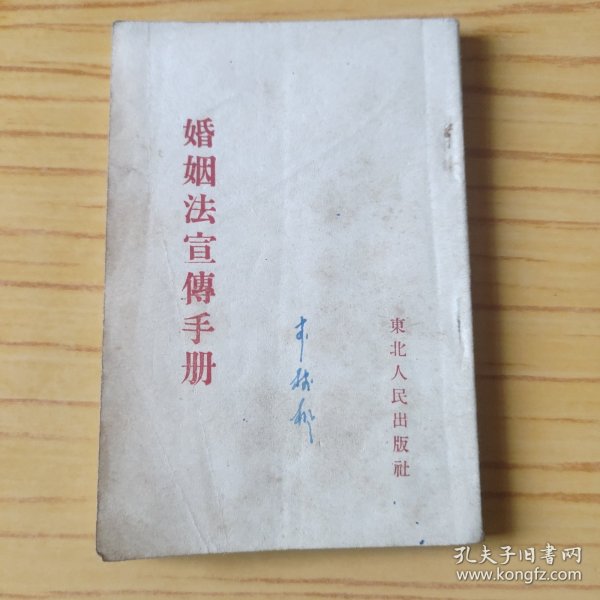 婚姻法宣傳手册
東北人民出版社
孔夫子旧書网
www.kongfz.com